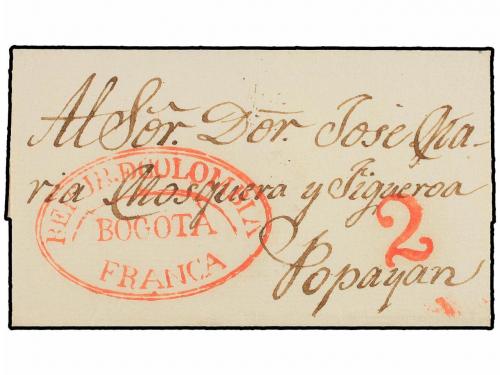 Al Sor. Dor. Jose Ma-
ria Mosquera y Figueroa
Popayan
REP. JR. D COLOMBIA
BOGOTA
FRANCA
2